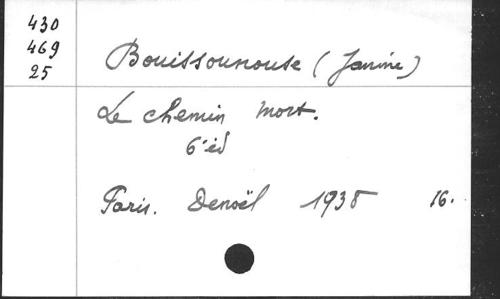 430
469
25
Bouissounouse (Janine)
Le chemin mort.
6e éd
Paris. Denoël 1938 16.